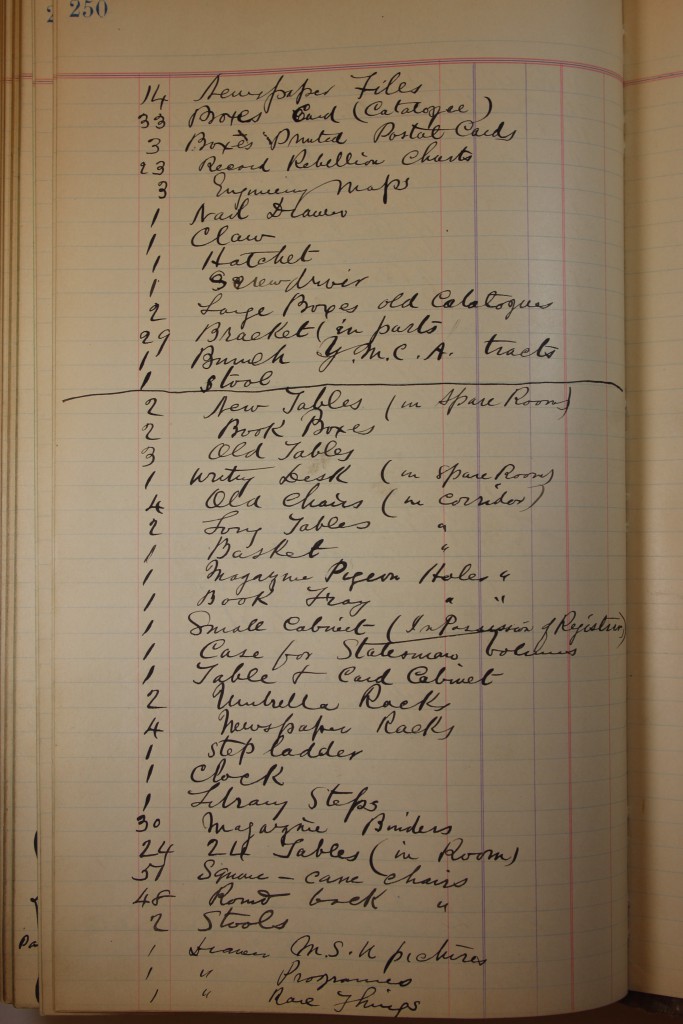 250
14 Newspaper Files
33 Boxes Card (Catalogue)
3 Boxes Printed Postal Cards
23 Record Rebellion Charts
3 Engineering Maps
1 Nail Drawer
1 Claw
1 Hatchet
1 Screwdriver
2 Large Boxes old Catalogues
29 Bracket (in parts
1 Bunch Y.M.C.A. tracts
1 Stool
2 New Tables (in Spare Room)
2 Book Boxes
3 Old Tables
1 Writing Desk (in Spare Room)
4 Old Chairs (in Corridor)
2 Long Tables "
1 Basket "
1 Magazine Pigeon Holes "
1 Book Tray " "
1 Small Cabinet (In Possession of Registrar)
1 Case for Statesman volumes
1 Table & Card Cabinet
2 Umbrella Racks
4 Newspaper Racks
1 Step ladder
1 Clock
1 Library Steps
30 Magazine Binders
24 24 Tables (in Room)
51 Square - cane chairs
48 Round back "
2 Stools
1 Drawer M.S.U pictures
1 " Programmes
1 " Rare Things